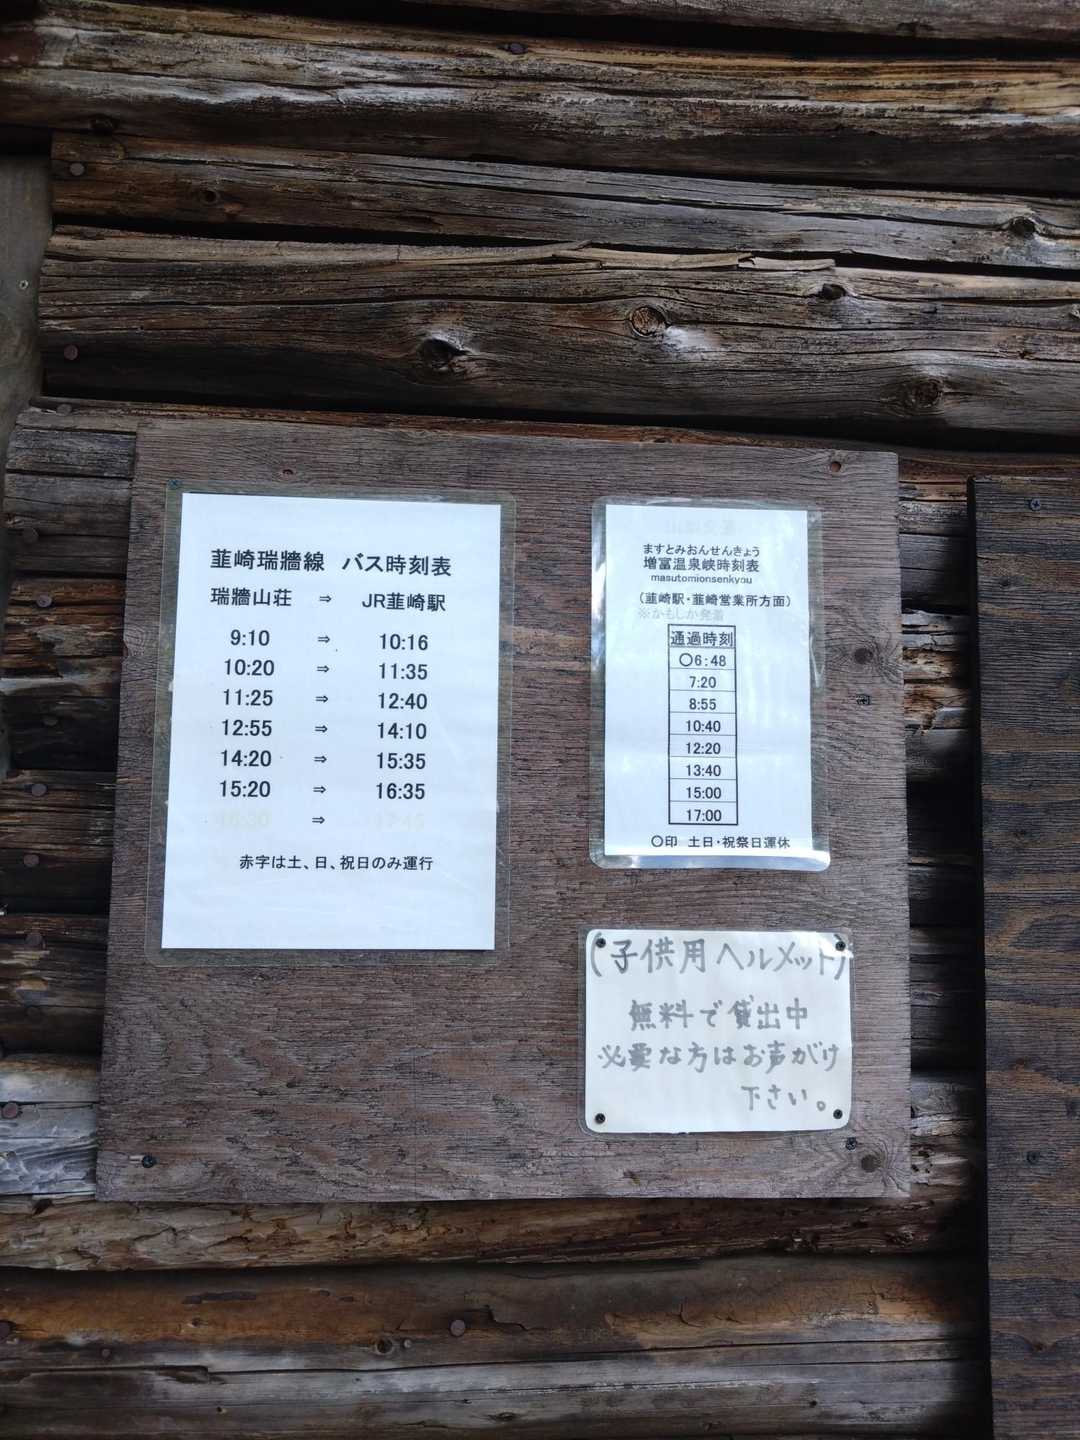 韮崎瑞牆線 バス時刻表
瑞牆山荘 ⇒ JR韮崎駅
9:10 ⇒ 10:16
10:20 ⇒ 11:35
11:25 ⇒ 12:40
12:55 ⇒ 14:10
14:20 ⇒ 15:35
15:20 ⇒ 16:35
16:30 ⇒ 17:45
赤字は土、日、祝日のみ運行
ますとみおんせんきょう
増冨温泉峡時刻表
masutomionsenkyou
(韮崎駅・韮崎営業所方面)
※かもしか発着
通過時刻
〇6:48
7:20
8:55
10:40
12:20
13:40
15:00
17:00
〇印 土日・祝祭日運休
(子供用ヘルメット)
無料で貸出中
必要な方はお声がけ
下さい。